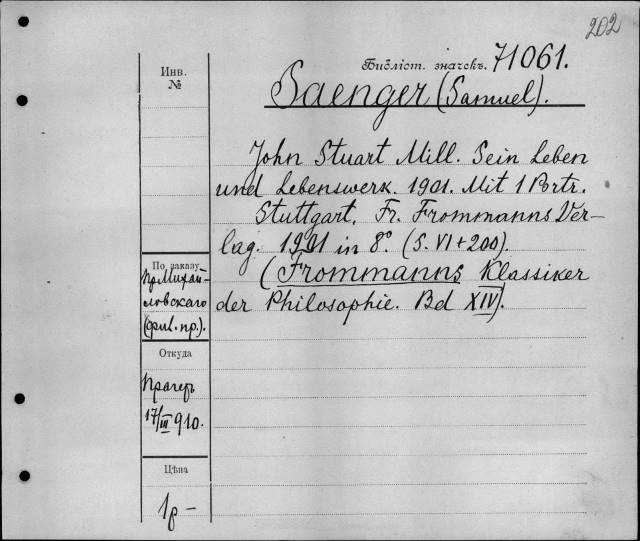 202
Библіот. значекъ. 71061.
Инв.
№
Saenger (Samuel).
John Stuart Mill. Sein Leben
und Lebenswerk. 1901. Mit 1 Prtr.
Stuttgart. Fr. Frommanns Ver-
lag. 1901 in 8° (S. VI + 200).
(Frommanns Klassiker
der Philosophie. Bd XIV).
По заказу
Пр. Михай-
ловскаго
(фил. пр.).
Откуда
Прагеръ
17/III 910.
Цѣна
1р –